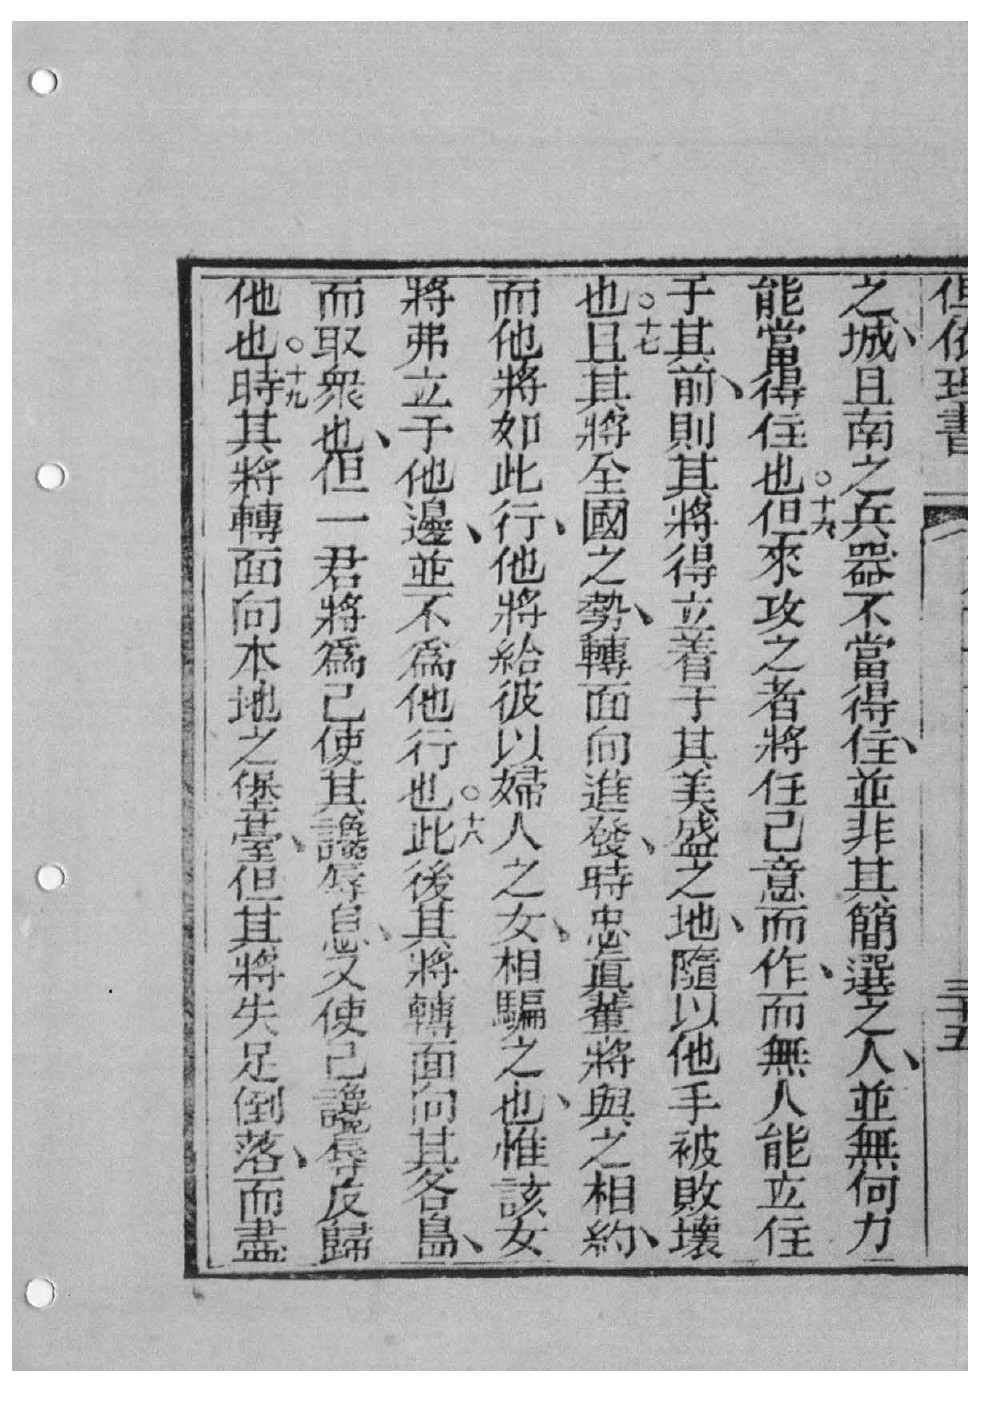 但依理書
三十五
之城、且南之兵器不當得住、並非其簡選之人、並無何力
能當得住也○十六但來攻之者將任己意而作、而無人能立住
于其前、則其將得立着于其美盛之地、隨以他手被敗壞
也○十七且其將全國之勢、轉面向進發、時忠直輩將與之相約、
而他將如此行、他將給彼以婦人之女、相騙之也、惟該女
將弗立于他邊、並不爲他行也○十八此後其將轉面向其各島、
而取衆也、但一君將爲己使其讒辱息、又使己讒辱反歸
他也○十九時其將轉面向本地之堡臺、但其將失足倒落、而盡